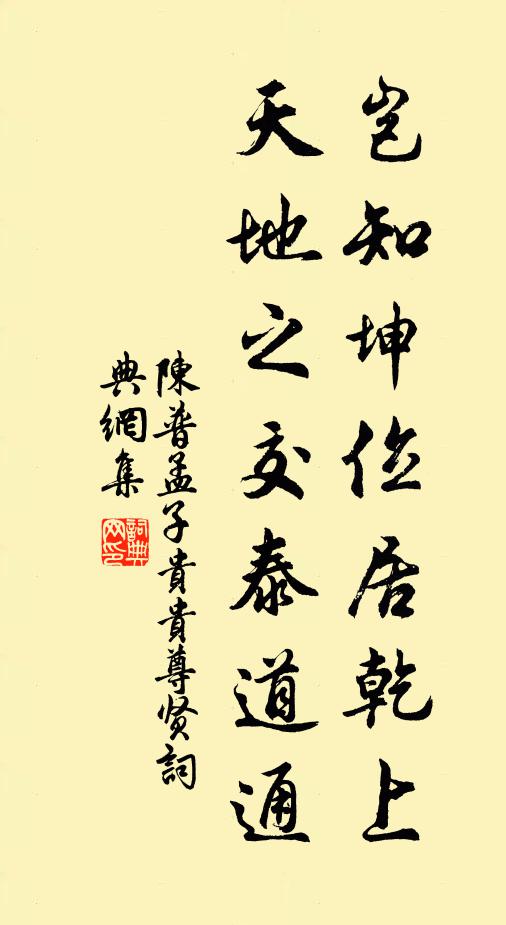 岂知坤位居乾上
天地之交泰道通
陳普孟子貴貴尊贤詞
典網集
詞典网印